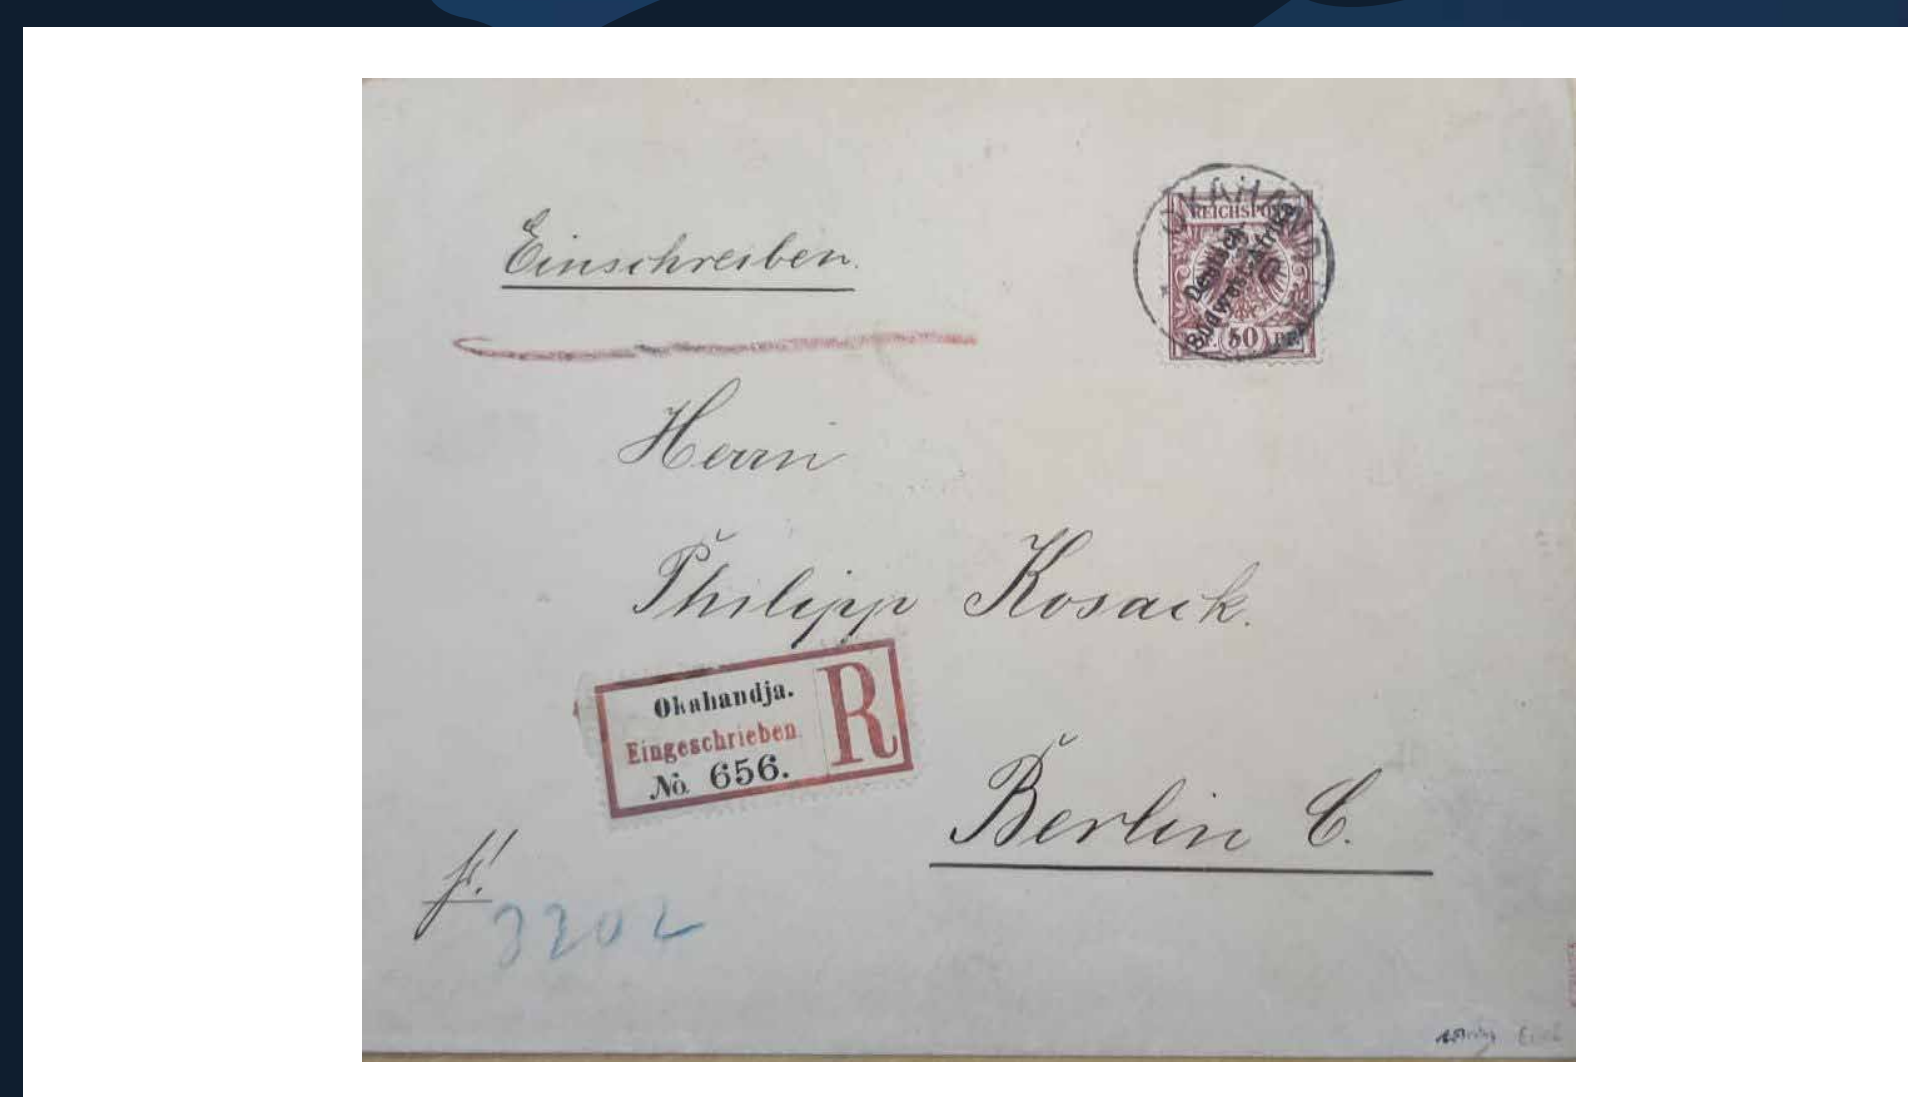 Einschreiben.
OKAHANDJA
REICHSPOST
Deutsch-
Südwest-Afrika
PF. 50 PF.
Herrn
Philipp Kosack.
Okahandja.
Eingeschrieben.
No. 656.
R
Berlin C.
fr!
3202